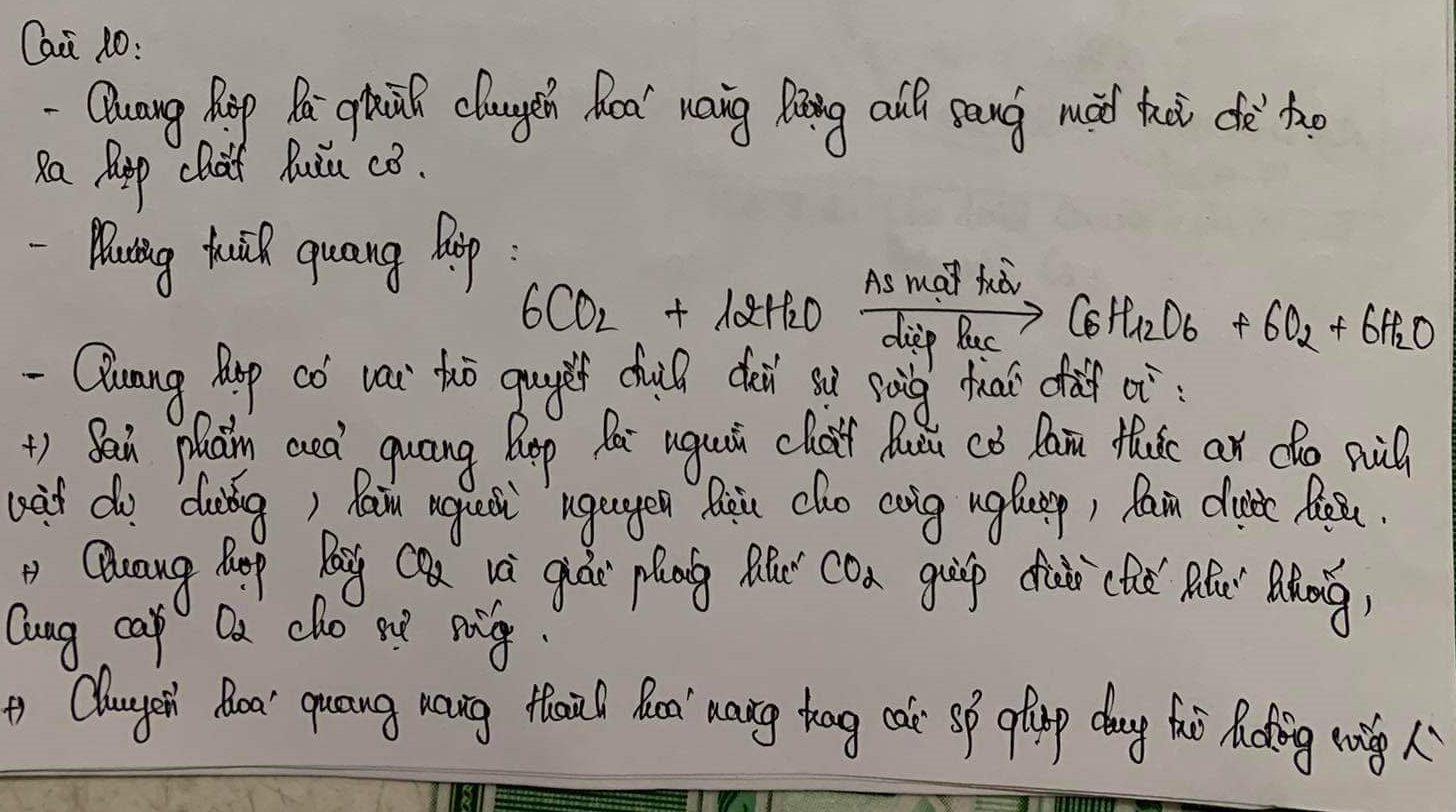 Câu 10:
- Quang hợp là qtrình chuyển hoá năng lượng ánh sáng mặt trời để tạo
ra hợp chất hữu cơ.
- Phương trình quang hợp :
6CO2 + 12H2O As mặt trời diệp lục → C6H12O6 + 6O2 + 6H2O
- Quang hợp có vai trò quyết định đến sự sống trái đất vì :
+) Sản phẩm của quang hợp là nguồn chất hữu cơ làm thức ăn cho sinh
vật dị dưỡng , làm nguồn nguyên liệu cho công nghiệp , làm dược liệu .
+) Quang hợp lấy CO2 và giải phóng khí CO2 giúp điều chế khí không ,
Cung cấp O2 cho sự sống .
+) Chuyển hoá quang năng thành hoá năng trong các sp qhợp duy trì hđộng sống